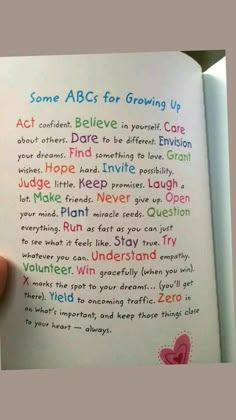 Some ABCs for Growing Up
Act confident. Believe in yourself. Care
about others. Dare to be different. Envision
your dreams. Find something to love. Grant
wishes. Hope hard. Invite possibility.
Judge little. Keep promises. Laugh a
lot. Make friends. Never give up. Open
your mind. Plant miracle seeds. Question
everything. Run as fast as you can just
to see what it feels like. Stay true. Try
whatever you can. Understand empathy.
Volunteer. Win gracefully (when you win).
X marks the spot to your dreams... (you'll get
there). Yield to oncoming traffic. Zero in
on what's important, and keep those things close
to your heart — always.